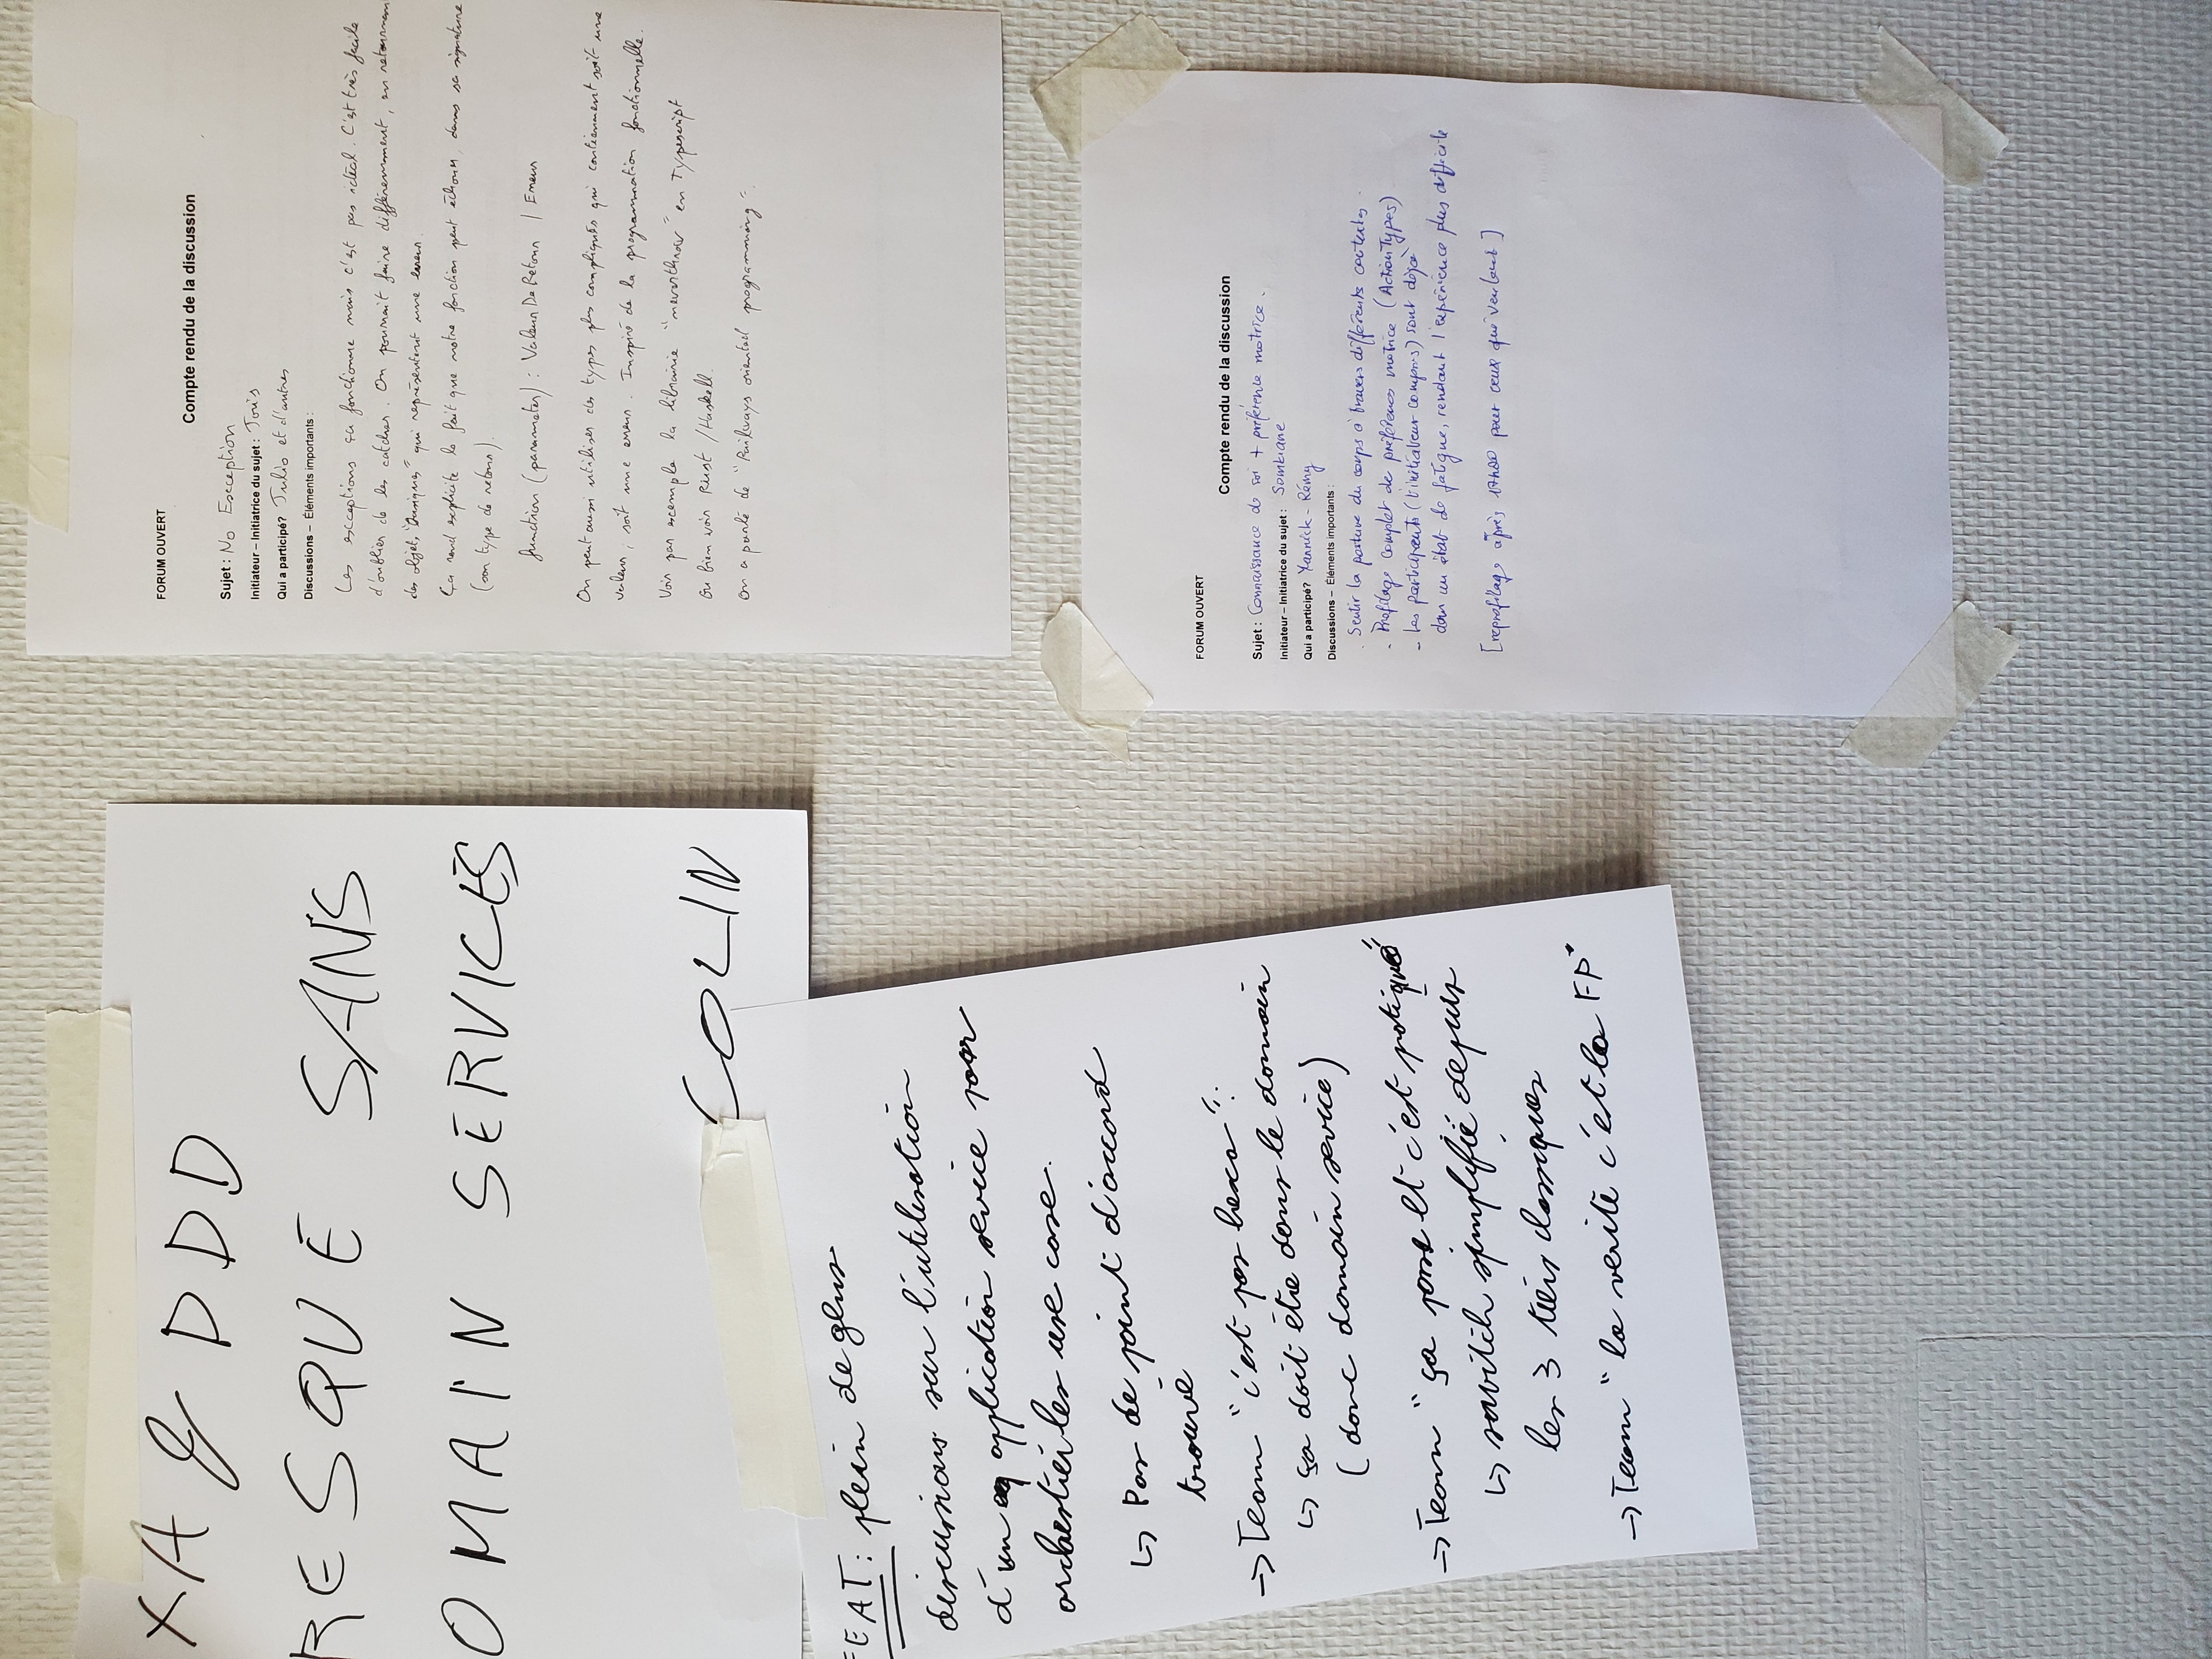 XA & DDD
RESQUE SANS
OMAIN SERVICES
COLIN
FEAT: plein de gens
discussions sur l'utilisation
d'un application service pour
orchestrer les use case.
↳ Pas de point d'accord
trouvé
→ Team "c'est pas hexa":
↳ ça doit être dans le domain
(donc domain service)
→ Team "ça passe et c'est pratique"
↳ switch simplifié depuis
les 3 tiers classiques
→ Team "la vérité c'est la FP"
FORUM OUVERT
Compte rendu de la discussion
Sujet : No Exception
Initiateur – Initiatrice du sujet : Joris
Qui a participé? Julio et d'autres
Discussions – Éléments importants :
Les exceptions ça fonctionne mais c'est pas idéal. C'est très facile
d'oublier de les catcher. On pourrait faire différemment, en retournan
des objets "basiques" qui représentent une erreur.
Ça rend explicite le fait que notre fonction peut échouer, dans sa signature
(son type de retour).
function (parameter) : ValeurDeRetour | Erreur
On peut aussi utiliser des types plus compliqués qui contiennent soit une
valeur, soit une erreur. Inspiré de la programmation fonctionnelle.
Voir par exemple la librairie "neverthrow" en Typescript
Ou bien voir Rust / Haskell.
On a parlé de "Railways oriented programming".
FORUM OUVERT
Compte rendu de la discussion
Sujet : Connaissance de soi + préférence motrice.
Initiateur – Initiatrice du sujet : Somkiane
Qui a participé? Yannick - Rémy
Discussions – Éléments importants :
. Sentir la posture du corps à travers différents contextes.
. Profilage complet de préférences motrice (ActionTypes)
- Les participants (l'initiateur compris) sont déjà
dans un état de fatigue, rendant l'expérience plus difficile
[reprofilage après 17h00 pour ceux qui veulent]